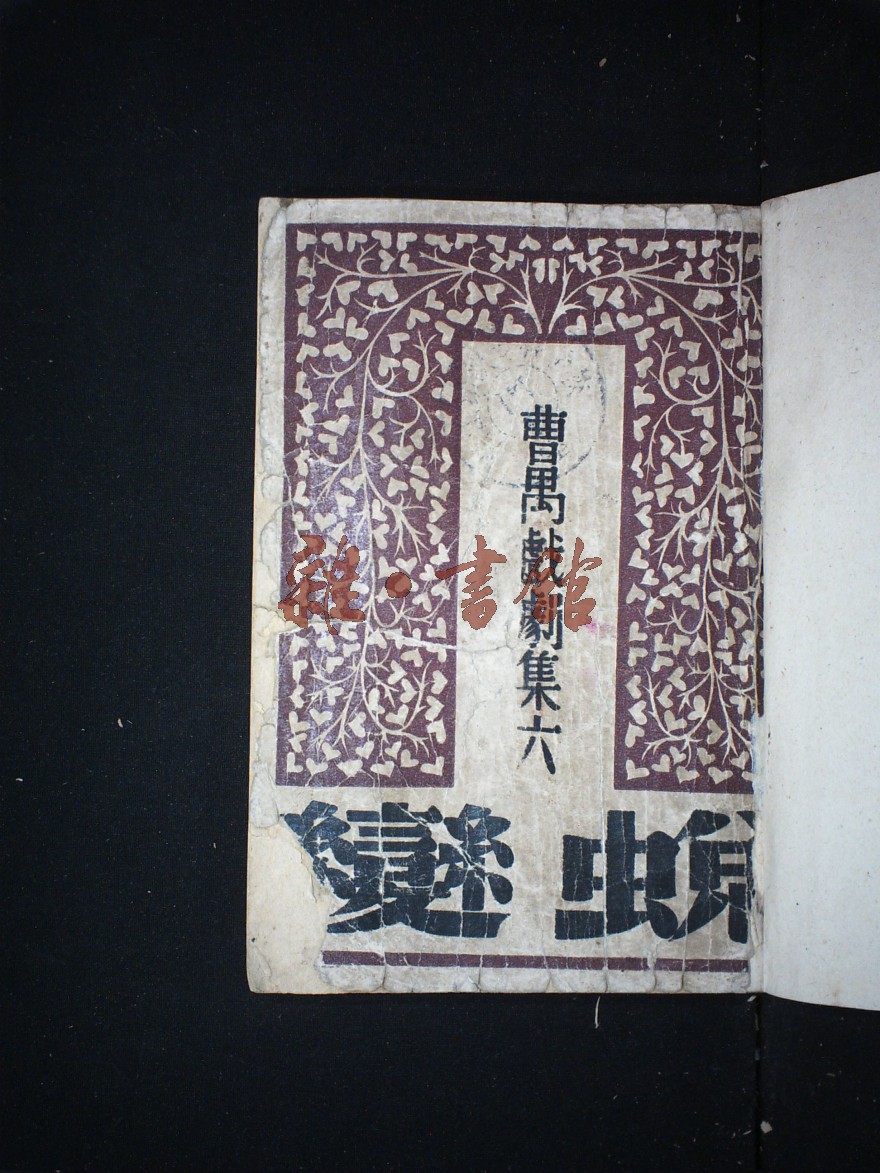 曹禺戲劇集六
蛻變
雜·書館